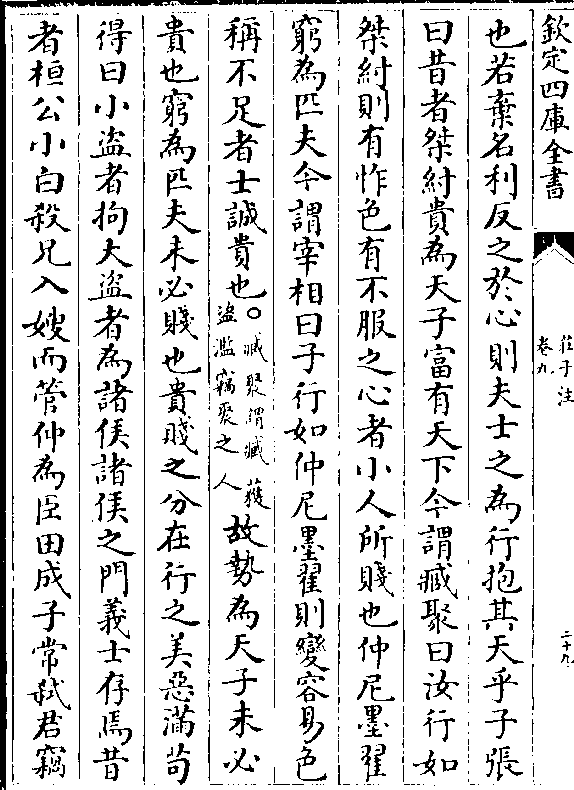 欽定四庫全書
莊子注
卷九
二十九
也若棄名利反之於心則夫士之為行抱其天乎子張
曰昔者桀紂貴為天子富有天下今謂臧聚曰汝行如
桀紂則有怍色有不服之心者小人所賤也仲尼墨翟
窮為匹夫今謂宰相曰子行如仲尼墨翟則變容易色
稱不足者士誠貴也。臧聚謂臧獲盜濫竊聚之人故勢為天子未必
貴也窮為匹夫未必賤也貴賤之分在行之美惡滿苟
得曰小盗者拘大盗者為諸侯諸侯之門義士存焉昔
者桓公小白殺兄入嫂而管仲為臣田成子常弒君竊